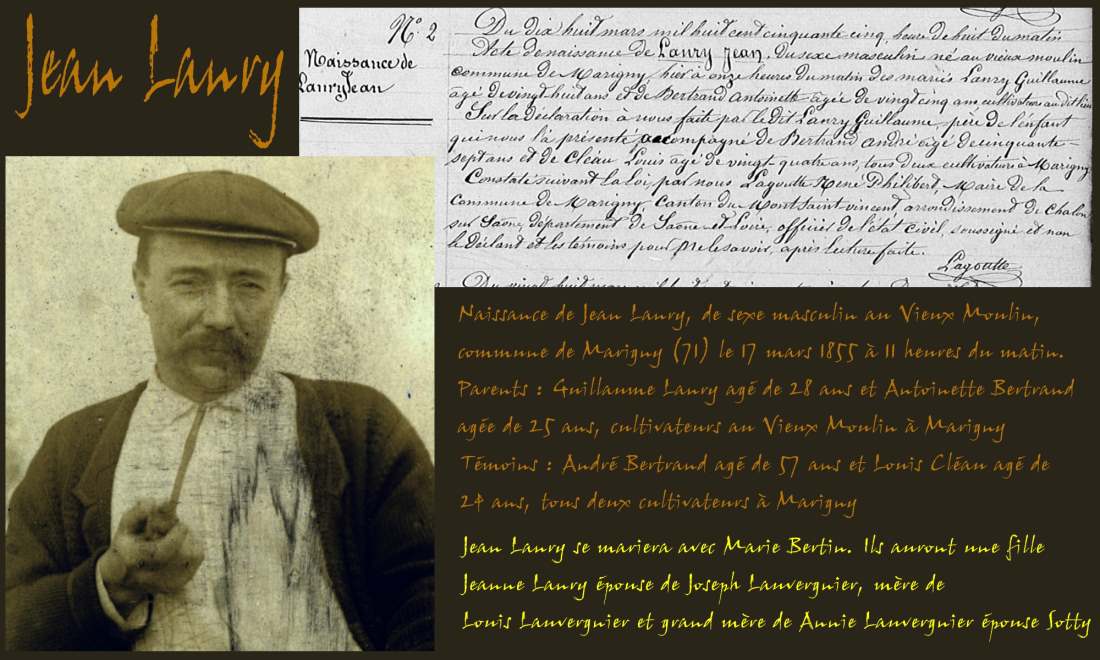 Jean Laury
N° 2
Naissance de
Laury Jean
Du dix huit mars mil huit cent cinquante cinq, heure de huit du matin
Acte de naissance de Laury Jean, du sexe masculin né au vieux moulin
commune de Marigny, hier à onze heures du matin des mariés Laury Guillaume
agé de vingt huit ans et de Bertrand Antoinette agée de vingt cinq ans, cultivateurs au dit lieu
Sur la déclaration à nous faite par le dit Laury Guillaume père de l'enfant
qui nous l'a présenté accompagné de Bertrand andré agé de cinquante-
sept ans et de Cléau Louis agé de vingt quatre ans, tous deux cultivateurs à Marigny
Constaté suivant la loi, par nous Lagoutte René Philibert, Maire de la
Commune de Marigny, Canton du Mont Saint vincent arrondissement de Chalon
sur Saône, département de Saône et Loire, officier de l'état civil, soussigné et non
le déclarant et les témoins pour ne le savoir, après lecture faite.
Lagoutte
Naissance de Jean Laury, de sexe masculin au Vieux Moulin,
commune de Marigny (71) le 17 mars 1855 à 11 heures du matin.
Parents : Guillaume Laury agé de 28 ans et Antoinette Bertrand
agée de 25 ans, cultivateurs au Vieux Moulin à Marigny
Témoins : André Bertrand agé de 57 ans et Louis Cléau agé de
24 ans, tous deux cultivateurs à Marigny
Jean Laury se mariera avec Marie Bertin. Ils auront une fille
Jeanne Laury épouse de Joseph Lauvergnier, mère de
Louis Lauvergnier et grand mère de Annie Lauvergnier épouse Sotty